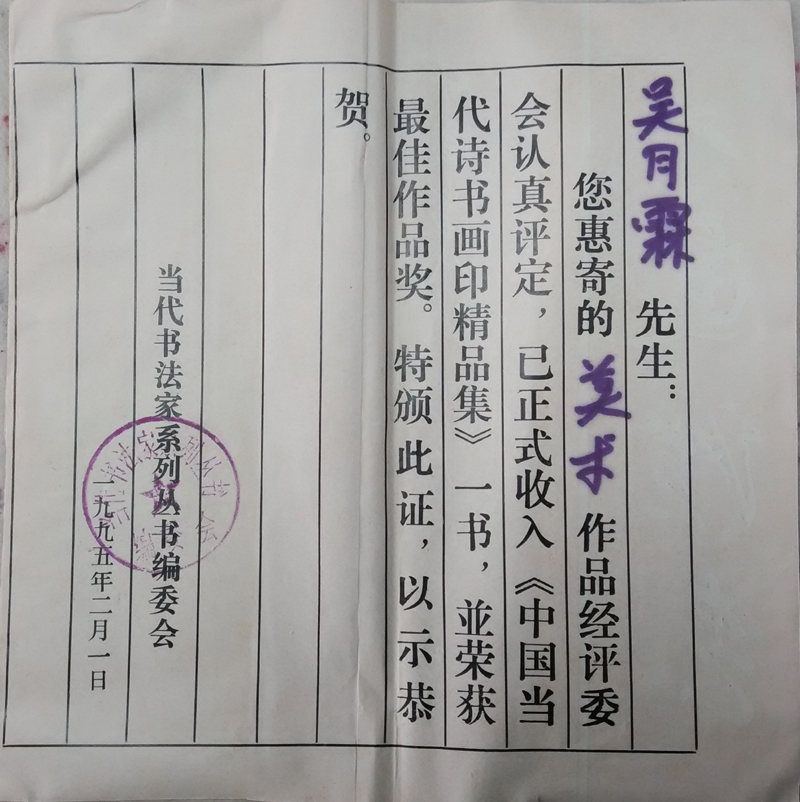 吴月霖 先生：
您惠寄的 美术 作品经评委
会认真评定，已正式收入《中国当
代诗书画印精品集》一书，並荣获
最佳作品奖。特颁此证，以示恭
贺。
当代书法家系列丛书编委会
一九九五年二月一日